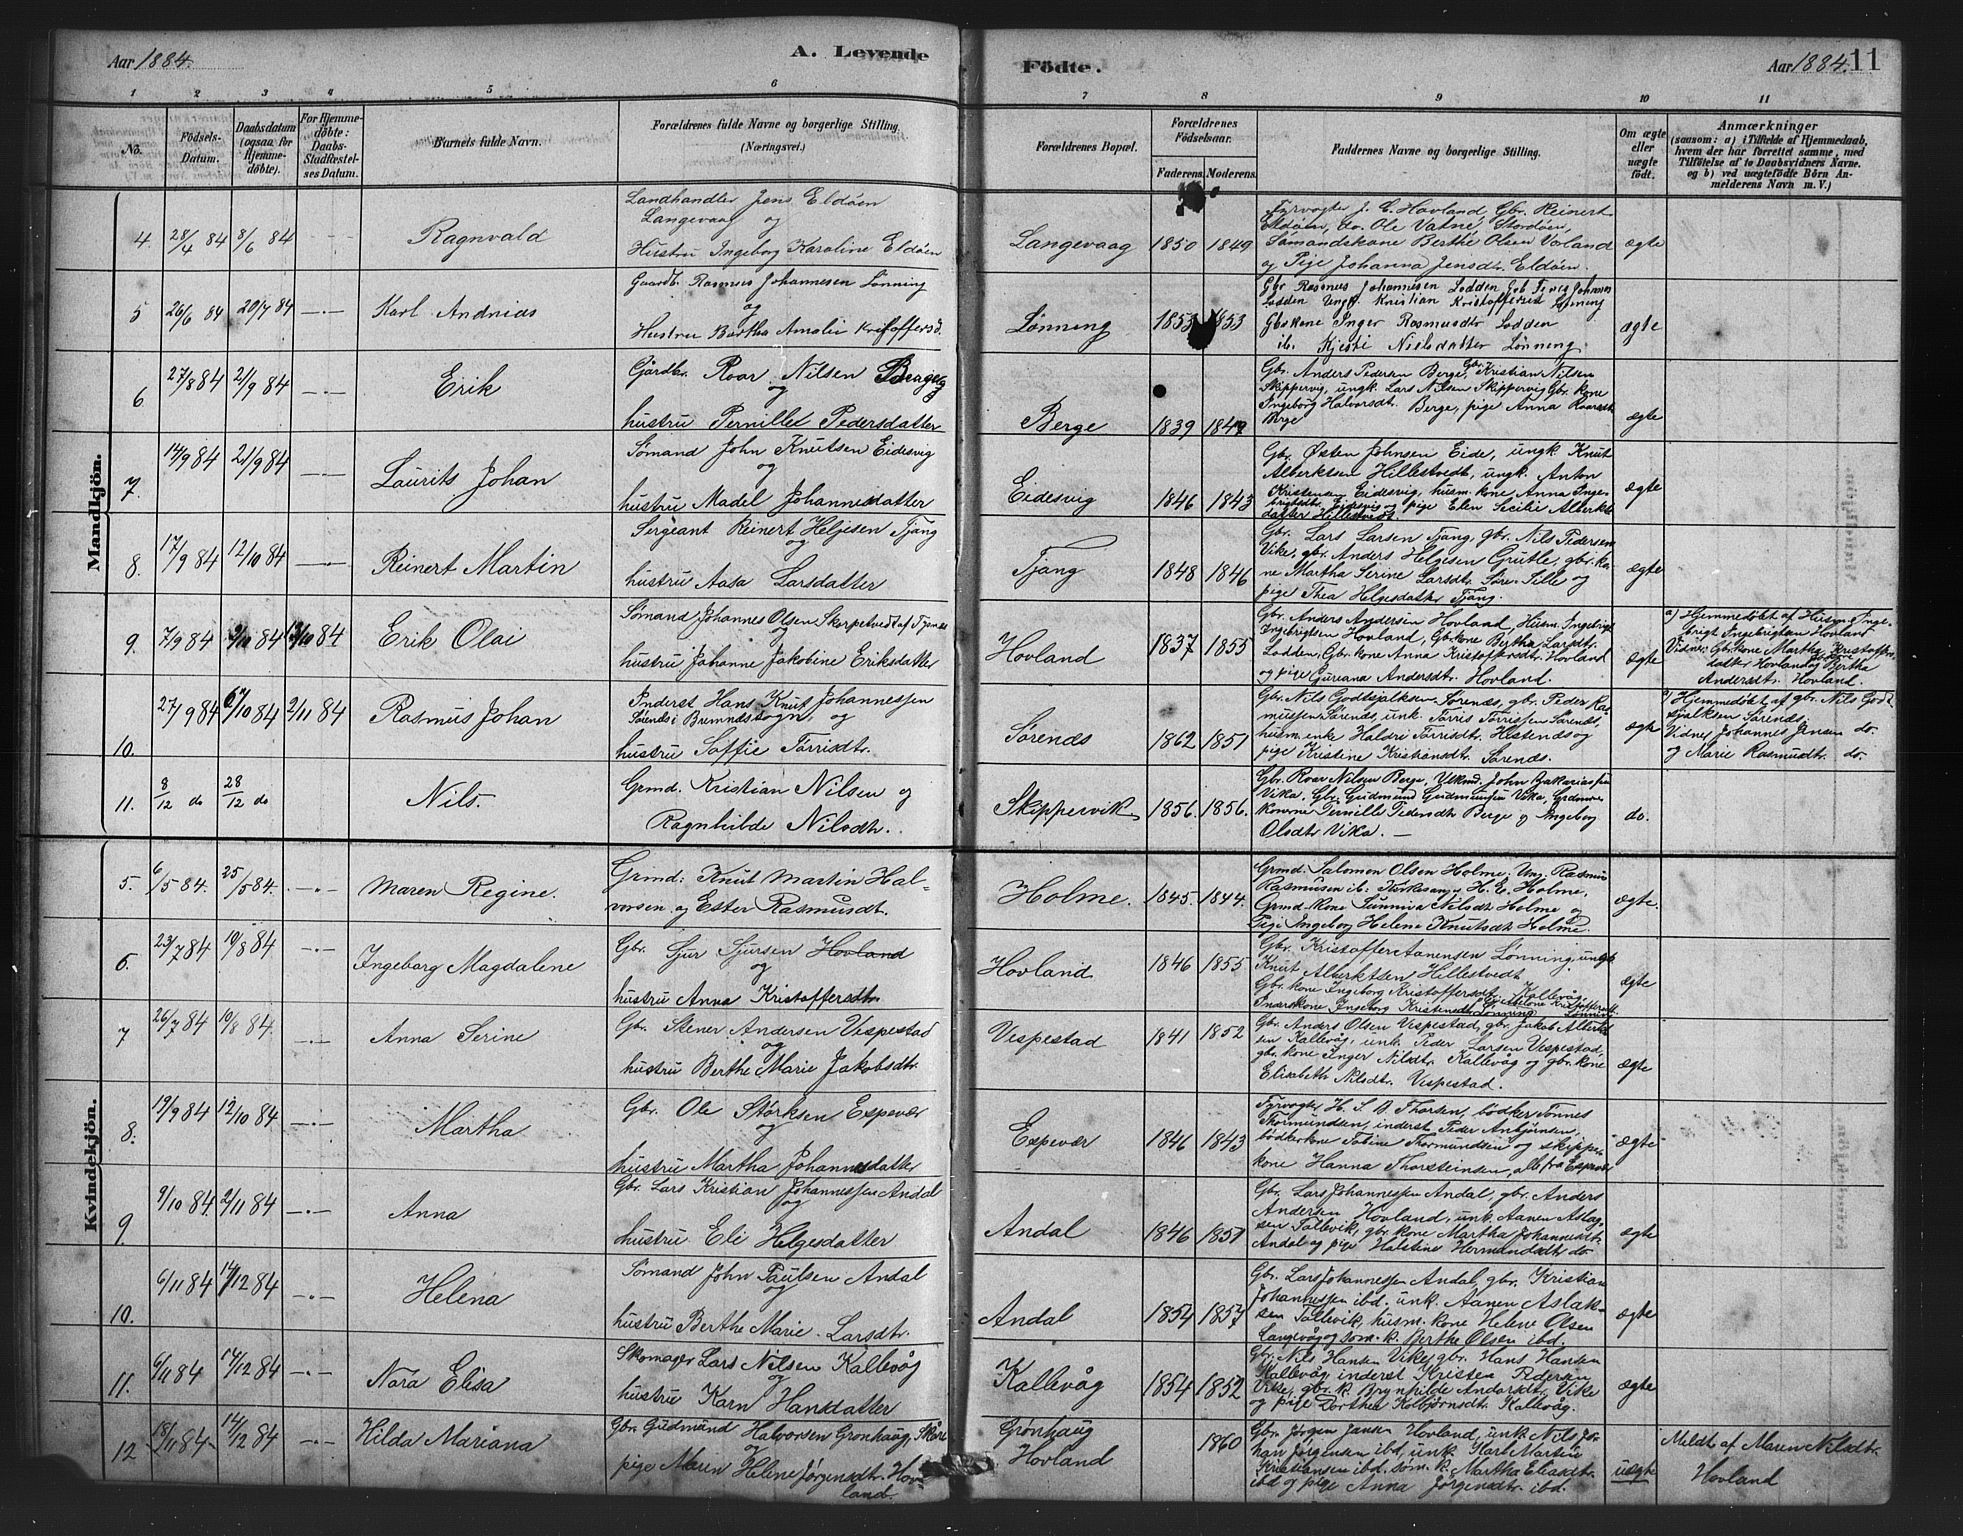 Aar 1884. A. Levende Födte. Aar 1884. 11
1 2 3 4 5 6 7 8 9 10 11
No.
Födsels-
Datum.
Daabsdatum
(ogsaa for
Hjemme-
döbte).
For Hjemme-
döbte:
Daabs-
Stadfæstel-
ses Datum.
Barnets fulde Navn.
Forældrenes fulde Navne og borgerlige Stilling.
(Næringsvei.)
Forældrenes Bopæl.
Forældrenes
Födselsaar.
Faderens. Moderens.
Faddernes Navne og borgerlige Stilling.
Om ægte
eller
uægte
födt.
Anmærkninger
(saasom: a) i Tilfælde af Hjemmedaab,
hvem der har forrettet samme, med
Tilföielse af to Daabsvidners Navne.
og b) ved uægtefödte Börn An-
melderens Navn m. V.)
Mandkjön.
4 28/4 84 8/6 84 Ragnvald
Landhandler Jens Eldøen
Langevaag og
Hustru Ingeborg Karoline Eldøen
Langevaag 1850 1849
Fyrvogter J. C. Hovland, Gbr. Reinert
Eldøen, do. Ole Vatne, Stordøen,
Sømandskone Berthe Olsen Vorland
og Pige Johanna Jensdt. Eldøen.
ægte
5 26/6 84 20/7 84 Karl Andrias
Gaardb. Rasmus Johannesen Lønning
og
Hustru Bertha Amalie Kristoffersd.
Lønning 1853 1853
Gbr Rasmus Johannesen Lodden Gbr
Lodden Ungk. Kristian Kristoffersen Lønning
Gbrkone Inger Rasmusdtr Lodden
ib. Kjesti Nielsdatter Lønning
ægte
6 27/8 84 21/9 84 Erik
Gårdbr. Roar Nilsen Berge
og
hustru Pernille Pedersdatter
Berge 1839 1849
Gbr. Anders Pedersen Berge, Gbr. Kristian Nilsen
Skippervig, ungk. Lars Nilsen Skippervig Gbr. kone
Ingeborg Halvorsdt. Berge, pige Anna Roarsdt.
Berge
ægte
7. 14/9 84 21/9 84 Laurits Johan
Sømand John Knutsen Eidesvig
og
hustru Madel Johannesdatter
Eidesvig 1846 1843
Gbr. Østen Johnsen Eide, ungk Knut
Alberktsen Hillestvedt, ungk. Anton
Kristensen Eidesvig, husm. kone Anna Inge-
brigtsdtr. Eidesvig og pige Elen Secilie Alberkts-
datter Hillestvedt.
ægte
8. 17/9 84 12/10 84 Reinert Martin
Sergeant Reinert Helgesen Tjang
og
hustru Aasa Larsdatter
Tjang 1848 1846
Gbr. Lars Larsen Tjang, gbr. Nils Pedersen
Vike, gbr. Anders Helgesen Grutle, gbr. ko-
ne Martha Serine Larsdt. Søre-Sille og
pige Thea Helgesdatter Tjang.
ægte
9. 7/9 84 9/10 84 13/10 84 Erik Olai
Sømand Johannes Olsen Skorpetvedt af Tysnæs
og
hustru Johanne Jakobine Eriksdatter
Hovland 1837 1855
Gbr. Anders Andersen Hovland, Husm. Ingebrigt
Ingebrigtsen Hovland, Gbrkone Bertha Larsdtr.
Lodden, Gbr. kone Anna Kristoffersdtr. Hovland
og pige Guriana Andersdt. Hovland.
ægte
a) Hjemmedøbt af Husm. Inge-
brigt Ingebrigtsen Hovland
Vidner: Gbrkone Martha Kristoffers-
datter Hovland og Bertha
Andersdtr. Hovland.
10. 27/9 84 6/10 84 2/11 84 Rasmus Johan
Inderst Hans Knut Johannessen
Sørends i Bremnes sogn, og
hustru Soffie Torrisdtr.
Sørends 1862 1851
Gbr. Nils Godskjalksen Sørends, gbr. Peder Ras-
mussen Sørends, unk Torris Torrissen Sørends,
husm. enke Haldri Torrisdt. Hestends og
pige Kristine Kristiansdt. Sørends.
ægte
a) Hjemmedøbt af gbr. Nils God-
skjalksen Sørends.
Vidner Johannes Jensen do.
og Marie Rasmusdt. do.
11. 8/12 do 28/12 do Nils.
Grmd. Kristian Nilsen og
Ragnhilde Nilsdtr.
Skippervik 1856. 1856.
Gbr. Roar Nilsen Berge, John Zakariassen
Vika, Gbr. Gudmund Gudmundsen Vika,
konerne Pernille Pedersdt. Berge og Ingeborg
Olsdtr Vika. —
do.
Kvindekjön.
5. 6/5 84. 25/5 84. Maren Regine.
Grmd: Knut Martin Hal-
vorsen og Ester Rasmusdt.
Holme. 1845. 1844.
Grmd. Salomon Olsen Holme. Ung. Rasmus
Rasmusen ib. Kirkesang. H. E. Holme,
Grmd. kone Sunniva Nilsdt Holme og
Pige Ingeborg Helene Knutsdt Holme.
ægte.
6. 23/7 84 10/8 84 Ingeborg Magdalene
Gbr. Sjur Sjursen Hovland
og
hustru Anna Kristoffersdtr.
Hovland 1846 1855
Gbr. Kristoffer Aanensen Lønning, ungk
Knut Alberktsen Hillestvedt
Gbr. kone Ingeborg Kristoffersdt. Kallevåg
Inderskone Ingeborg Kristensdt Lønning
ægte
7 26/7 84 10/8 84. Anna Serine
Gbr. Stener Andersen Vespestad
og
hustru Berthe Marie Jakobsdtr.
Vespestad 1841 1852
Gbr. Anders Olsen Vespestad, gbr. Jakob Alberkt-
sen Kallevåg, unk Peder Larsen Vespestad,
gbr. kone Inger Nilsdt. Kallevåg og gbr. kone
Elisabeth Nilsdt. Vespestad.
ægte
8. 19/9 84 12/10 84 Martha
Gbr. Ole Størksen Espevær
og
hustru Martha Johannesdatter
Espevær 1846 1843
Fyrvogter H. S. B Thorsen, bödker Tönnes
Thormundsen, inderst Peder Anbjørnsen,
bödkerkone Tobine Thormundsen og skipper-
kone Hanna Thorsteinsen, alle fra Espevær
ægte
9. 9/10 84. 2/11 84 Anna
Gbr. Lars Kristian Johannessen Andal
og
hustru Eli Helgesdatter
Andal 1846 1851
Gbr. Lars Johannessen Andal, gbr. Anders
Andersen Hovland, unk. Aanen Aslag-
sen Tollevik, gbr. kone Martha Johannesdt.
Andal og pige Halstine Hermundsdt do
ægte
10. 6/11 84 14/12 84 Helena
Sømand John Paulsen Andal
og
hustru Berthe Marie Larsdt.
Andal 1854 1857
Gbr. Lars Johannessen Andal, gbr. Kristian
Johannessen ibd, unk. Aanen Aslak-
sen Tollevik, husm. kone Helene Olsen
Langevåg og søm. k. Berthe Olsen ibd.
ægte
11. 6/11 84 14/12 84 Nora Elisa
Skomager Lars Nilsen Kallevåg
og
hustru Karn Hansdatter
Kallevåg 1854 1852
Gbr. Nils Hansen Vike, gbr. Hans Hansen
Kallevåg, inderst Kristen Pedersen
Vike, gbr. k. Brynhilde Andersdt. Vike
og pige Dorthea Kolbjørnsdt. Kallevåg.
ægte
12 18/11 84 14/12 84 Hilda Mariana
Gbr. Gudmund Halvorsen Grønhaug,
og
pige Maren Helene Jørgensdt. Hov-
land.
Grønhaug
Hovland 1860
Gbr. Jørgen Jansen Hovland, unk Nils Jo-
han Jørgensen ibd, unk. Karl Martin
Kristiansen ibd. søm. k. Martha Eliasdt.
ibd og pige Anna Jørgensdt. ibd.
uægte
Meldt af Maren Nilsdt.
Hovland